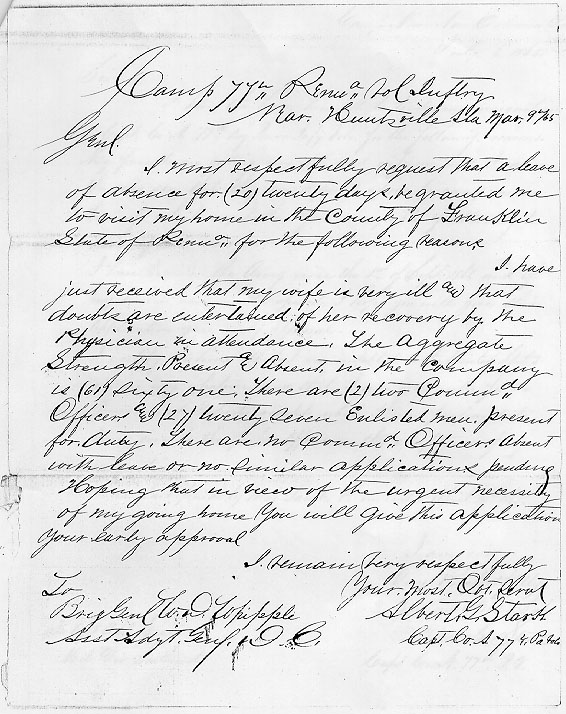 Camp 77" Penna" Vol Inftry
Near. Huntsville Ala Mar. 9th/65
Genl.
I. most respectfully request that a leave
of absence for (20) twenty days, be granted me
to visit my home in the County of Franklin
State of Penna" for the following reasons
I. have
just received that my wife is very ill and that
doubts are entertained; of her recovery by the
Physician in attendance. The Aggregate
Strength, Present & Absent, in the Company
is (61) Sixty one. There are (2) two Commd
Officers & (27) twenty Seven Enlisted men, present
for Duty. There are no Commd Officers absent
with leave or no similar applications pending
Hoping that in view of the urgent necessity
of my going home You will Give this application
Your early approval
I. remain very respectfully
Your. Most. Obt. Servt
To
Brig Genl W. D. Whipple
Asst Adyt. Genl. D. C.
Albert. G. Stark
Capt. Co. A 77th. Pa Vols